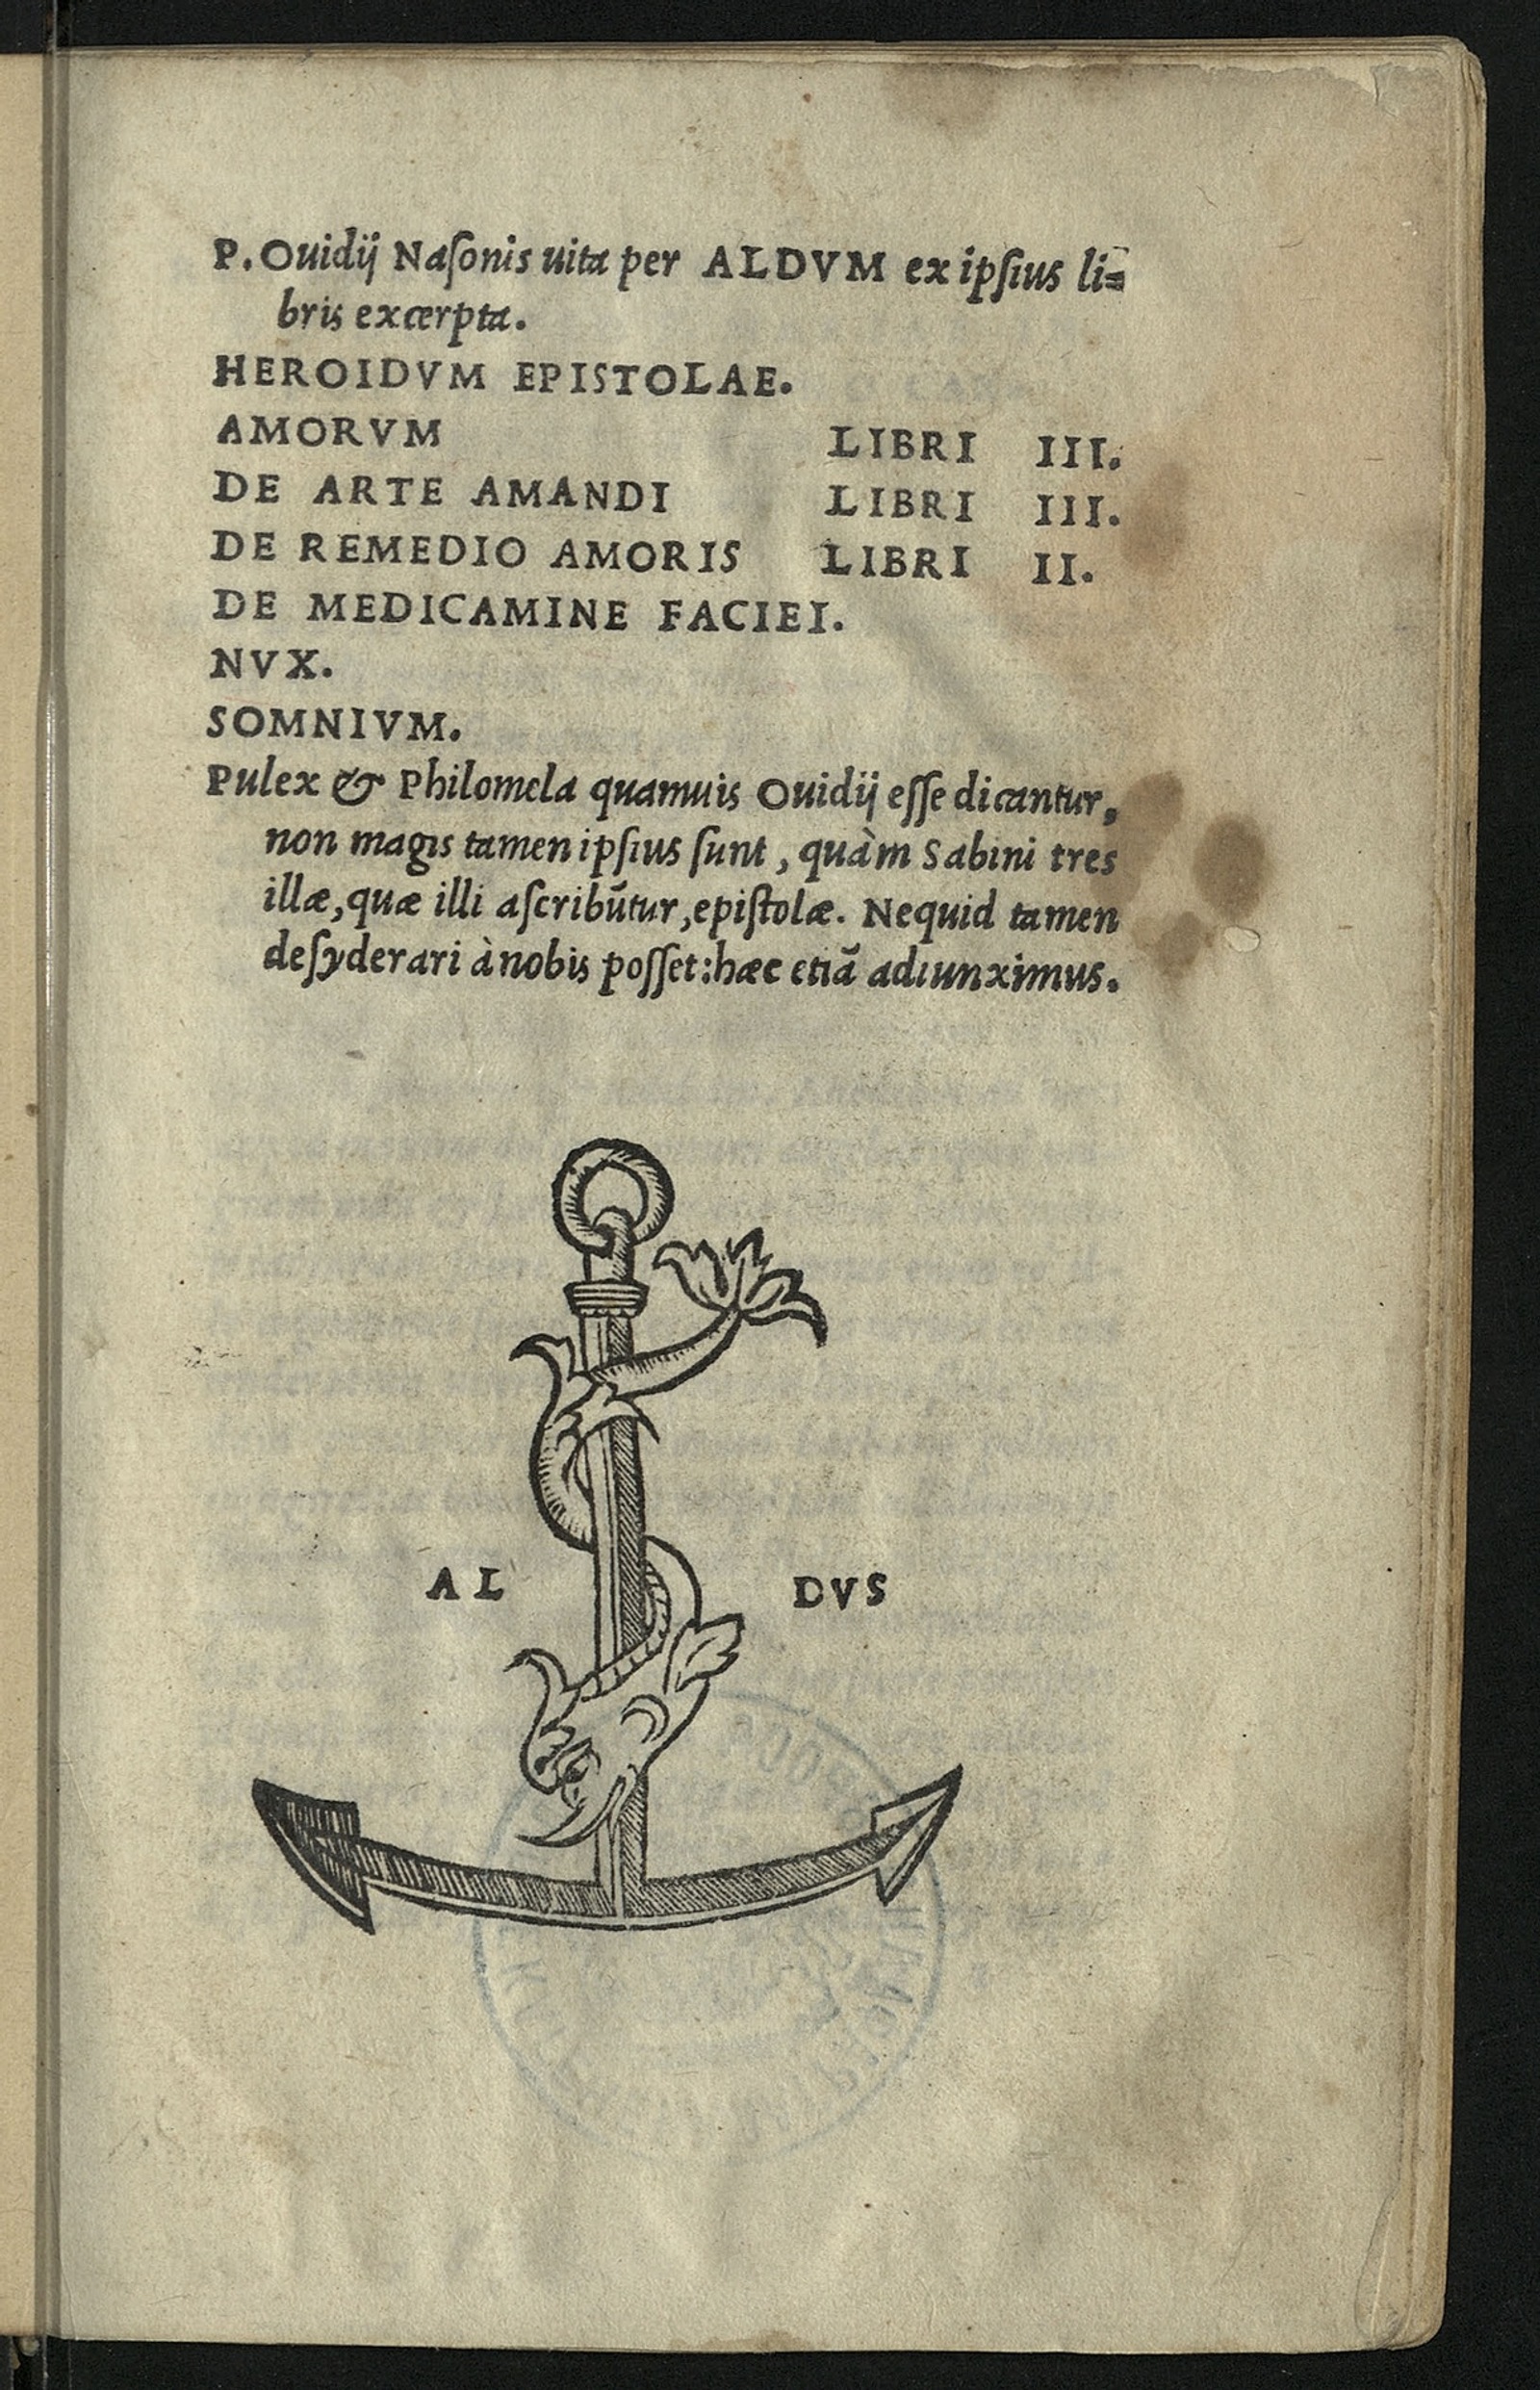 P. Ouidij Naſonis uita per ALDVM ex ipſius li=
bris excerpta.
HEROIDVM EPISTOLAE.
AMORVM LIBRI III.
DE ARTE AMANDI LIBRI III.
DE REMEDIO AMORIS LIBRI II.
DE MEDICAMINE FACIEI.
NVX.
SOMNIVM.
Pulex & Philomela quamuis Ouidij eſſe dicantur,
non magis tamen ipſius ſunt, quàm Sabini tres
illæ, quæ illi aſcribũtur, epiſtolæ. Nequid tamen
deſyderari à nobis poſſet: hæc etiã adiunximus.
AL DVS